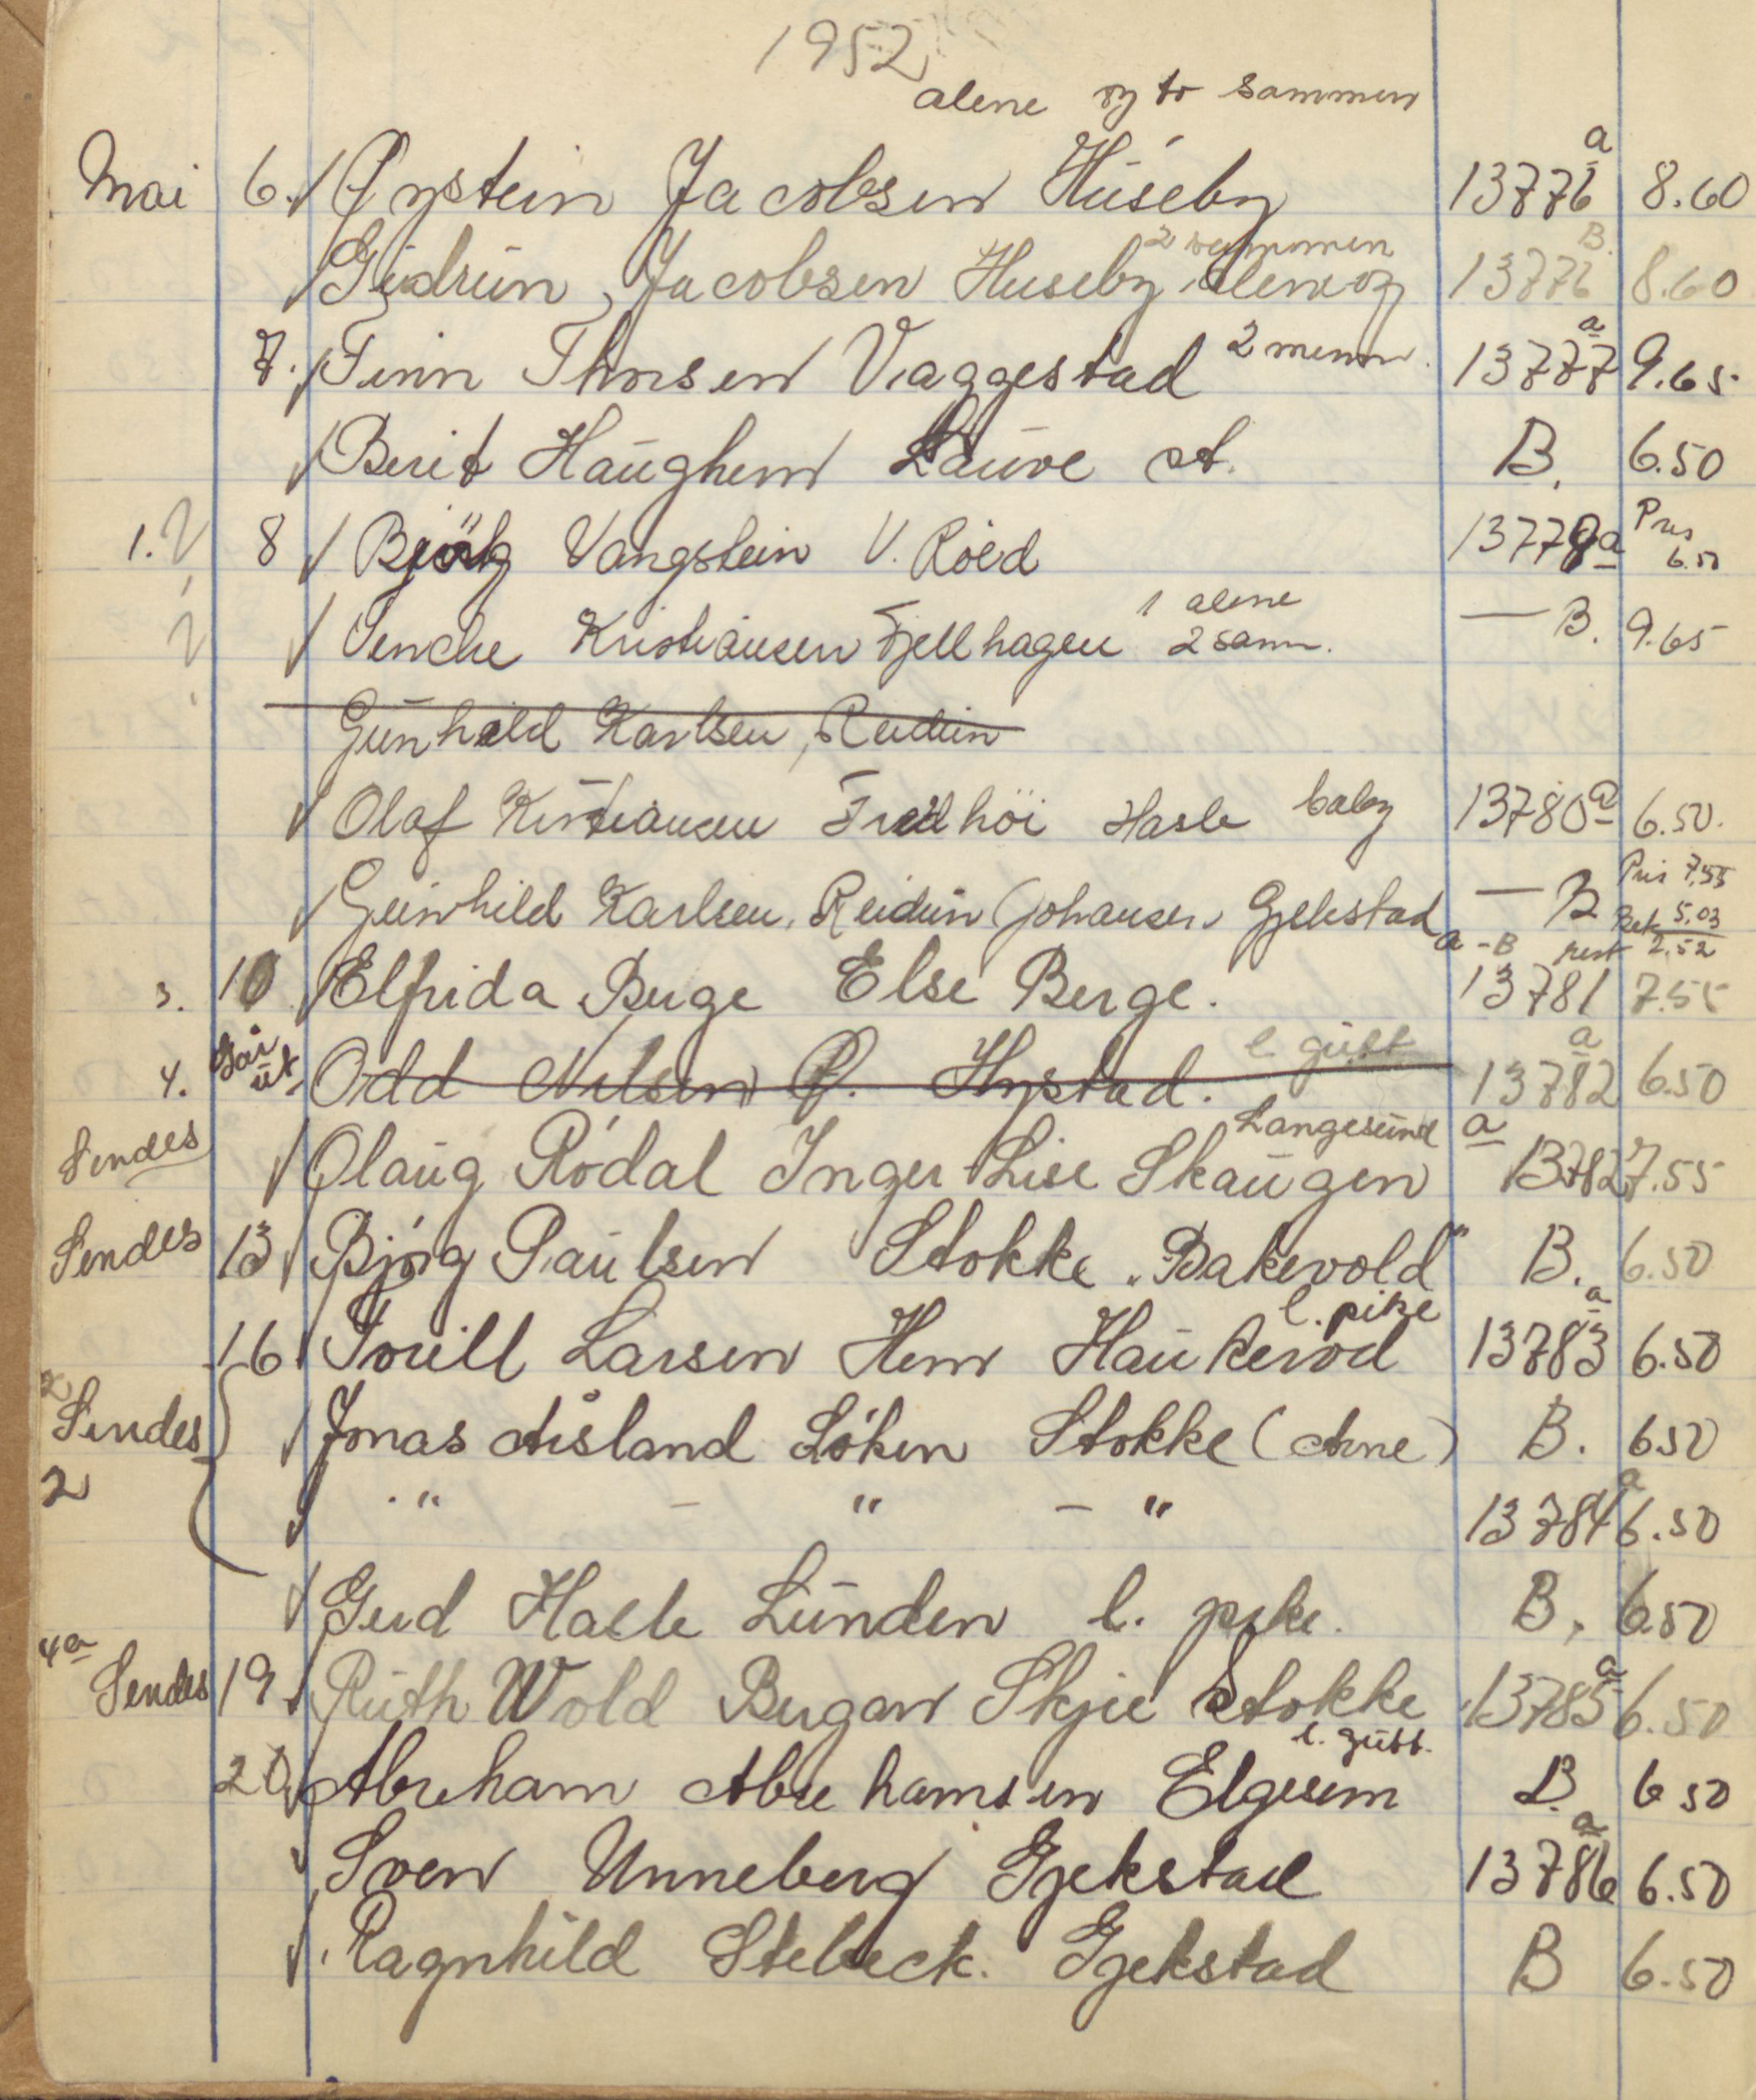 1952
alene og to sammen
Mai 6. Øystein Jacobsen Huseby 13776 a 8.60
Gudrun Jacobsen Huseby alene og 2 sammen 13776 B. 8.60
7. Finn Thorsen Vaggestad 2 menn. 13777 a 9.65
Berit Haughem Lauve st. B. 6.50
1. 8 Bjørg Vangstein V. Röed 13779a Pris 6.50
Wenche Kristiansen Fjellhagen 1 alene 2 sam. — B. 9.65
Gunhild Karlsen, Reidun
Olaf Kristiansen Fredhöi Hasle baby 13780 a 6.50.
Gunhild Karlsen, Reidun Johansen Gjekstad — B Pris 7.55
Bet. 5.03
rest 2.52
3. 10 Elfrida Berge Else Berge. a-B 13781 7.55
4. Går ut, Odd Nilsen P. Hystad. l gutt 13782 a 6.50
Sendes Olaug Rödal Inger Lise Skaugen Langesund a 13782 7.55
Sendes 13 Bjørg Paulsen Stokke "Bakevold" B. 6.50
16. Torill Larsen Hem Haukerød l. pike 13783 a 6.50
2 Sendes Jonas Åsland Löken Stokke (Arne) B. 6.50
2 " — " — " 13784 a 6.50
Gerd Hasle Lunden l. pike. B. 6.50
4a Sendes 19. Ruth Wold Bergan Skjee Stokke 13785 a 6.50
20. Abraham Abrahamsen Elgesem l. gutt. B. 6 50
Sven Unneberg Gjekstad 13786 a 6.50
Ragnhild Stebeck. Gjekstad B 6.50